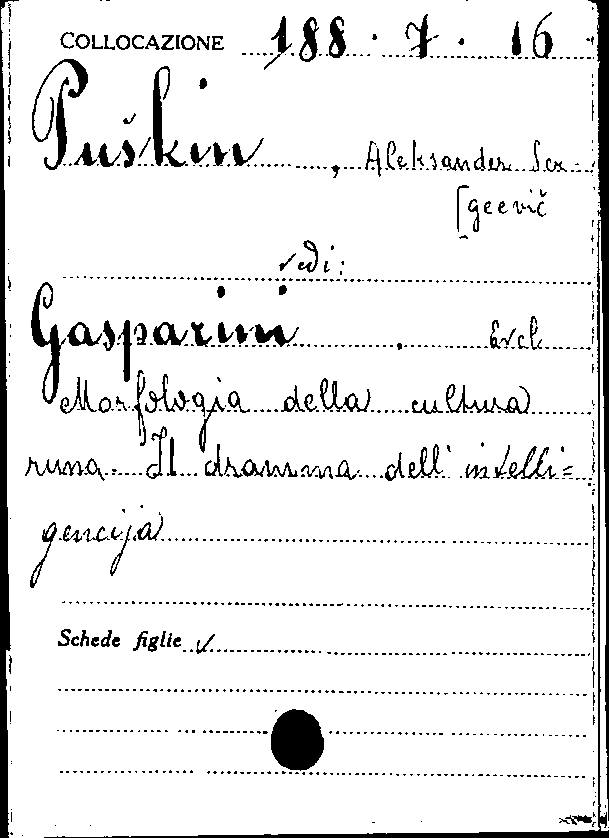 COLLOCAZIONE 188.7.16
Puškin, Aleksander Ser-
[geevič
vedi:
Gasparini, Evel
Morfologia della cultura
russa. Il dramma dell'intelli=
gencija
Schede figlie ✓